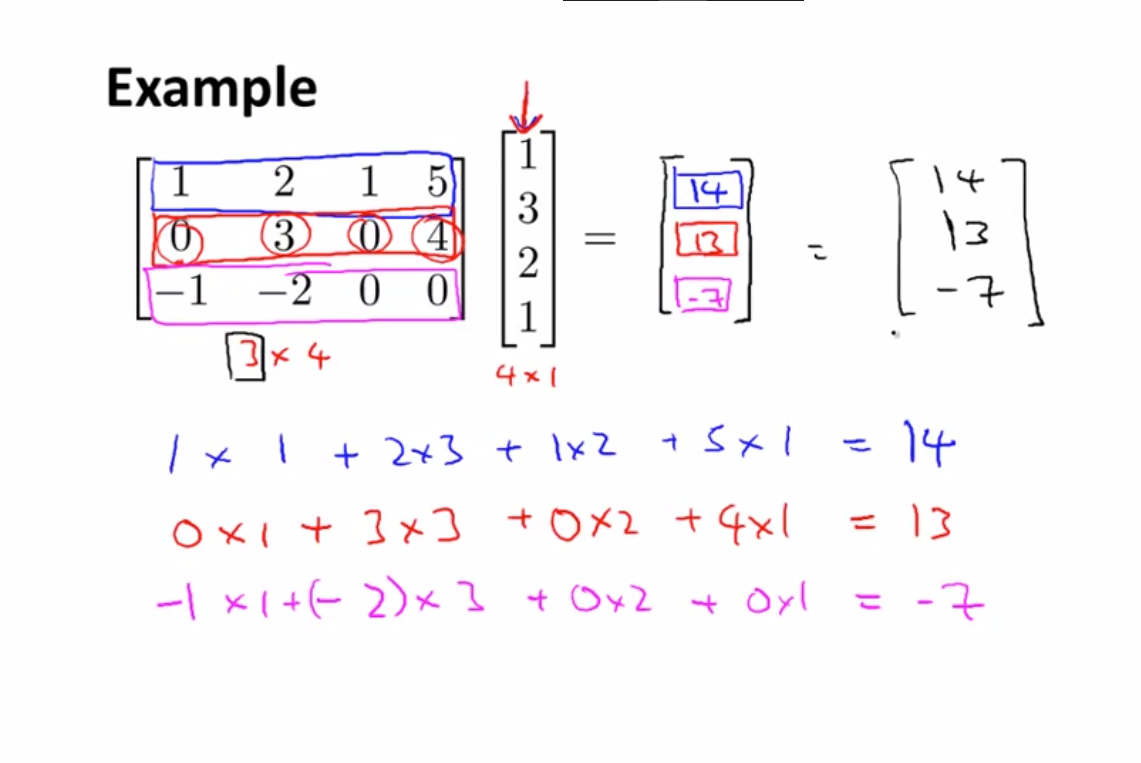 Example
1 2 1 5
0 3 0 4
−1 −2 0 0
1
3
2
1
=
14
13
-7
=
14
13
-7
3 × 4
4 × 1
1 × 1 + 2×3 + 1×2 + 5×1 = 14
0×1 + 3×3 + 0×2 + 4×1 = 13
-1 ×1+(-2)×3 + 0×2 + 0×1 = -7